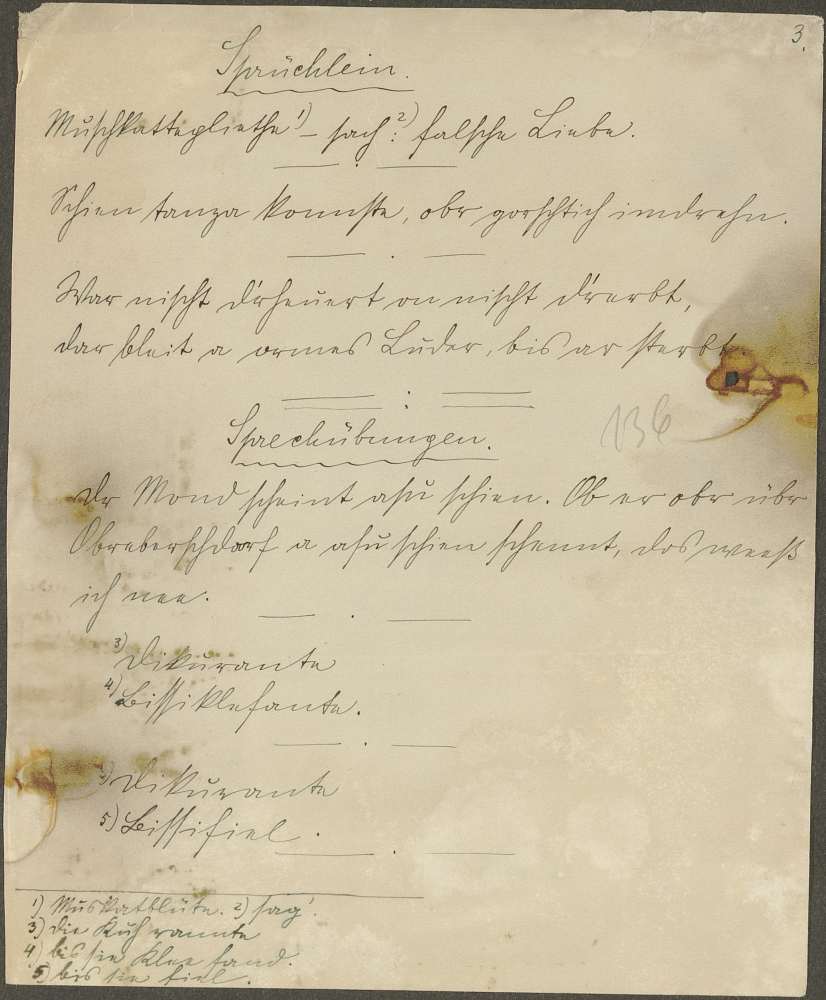 3.
Sprüchlein.
Muschkattepliethe¹) – sach²): falsche Liebe.
Schien tanza konnste, obr gorschtich imdrehn.
War nischt d'rheuert on nischt d'rerbt,
dar bleit a ormes Luder, bis ar sterbt
136
Sprechübungen.
Dr Mond scheint asu schien. Ob er obr übr
Obreberschdorf a asu schien schennt, dos weeß
ich nee.
³) Dikurante
⁴) Bissiklefante.
³) Dikurante
⁵) Bissifiel.
1) Muskatblüte. 2) sag'.
3) die Kuh rannte
4) bis sie Klee fand.
5) bis sie fiel.